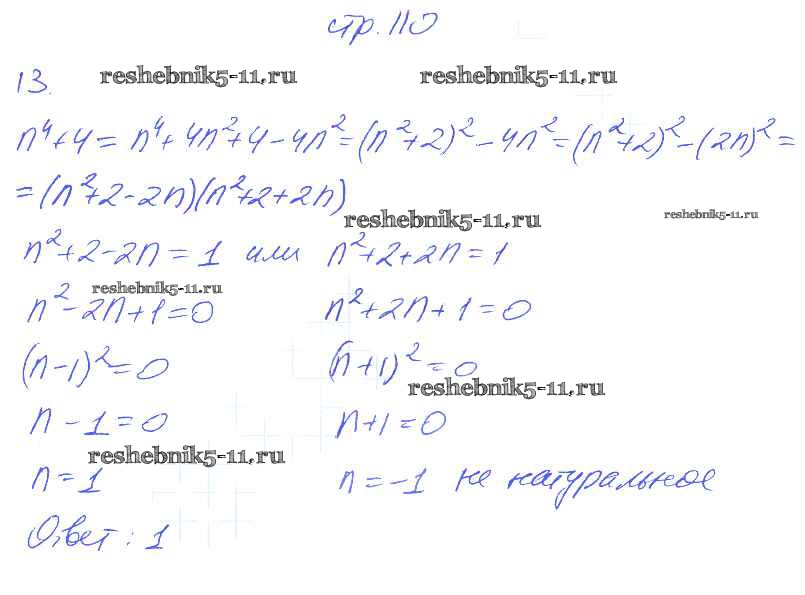 стр. 110
13. reshebnik5-11.ru reshebnik5-11.ru
n⁴+4= n⁴+4n²+4-4n²=(n²+2)²-4n²=(n²+2)²-(2n)²=
=(n²+2-2n)(n²+2+2n)
reshebnik5-11.ru reshebnik5-11.ru
n²+2-2n=1 или n²+2+2n=1
reshebnik5-11.ru
n²-2n+1=0 n²+2n+1=0
(n-1)²=0 (n+1)²=0
reshebnik5-11.ru
n-1=0 n+1=0
reshebnik5-11.ru
n=1 n=-1 не натуральное
Ответ: 1